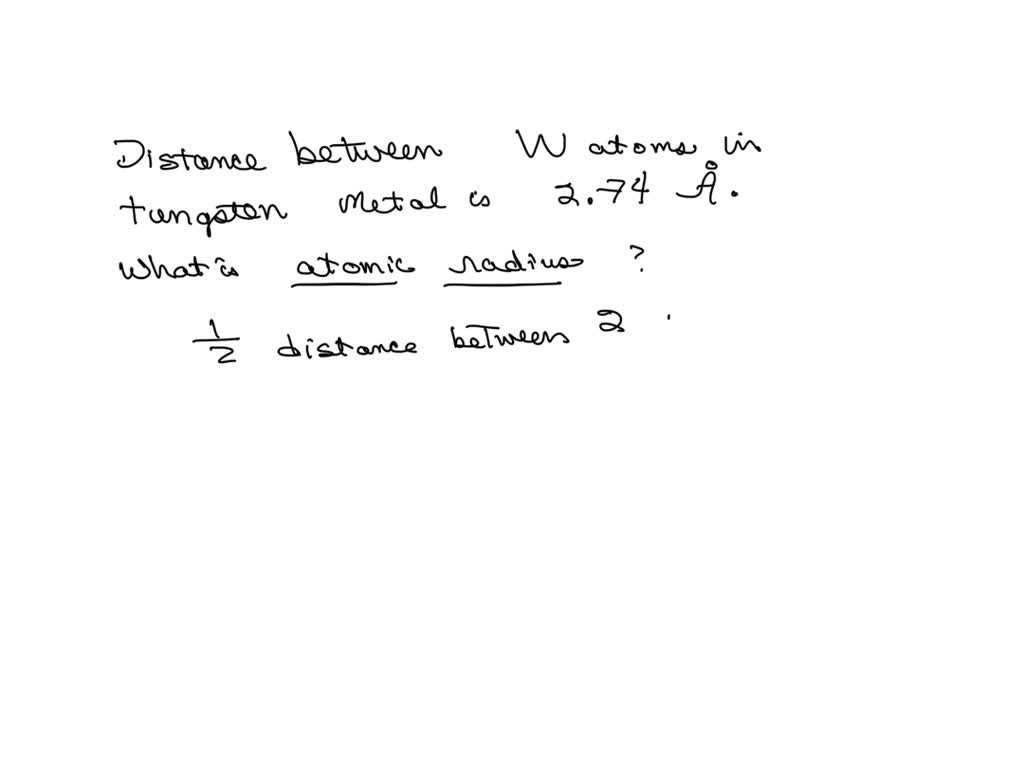 Distance between W atoms in
tungsten metal is 2.74 Å.
What is atomic radius ?
1/2 distance between 2